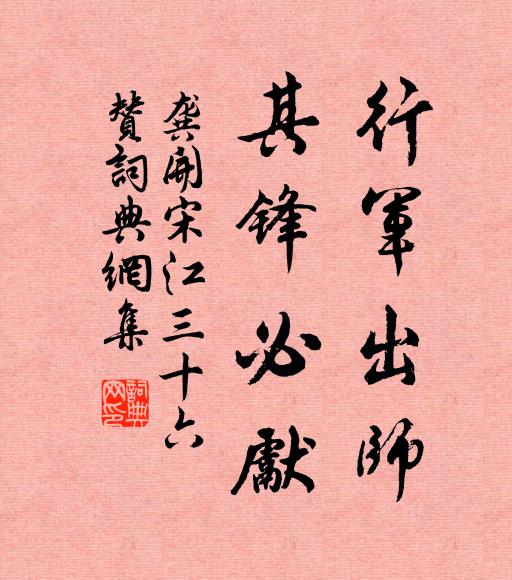 行軍出師
其鋒必獻
龔開宋江三十六
贊詞典網集
詞典網印